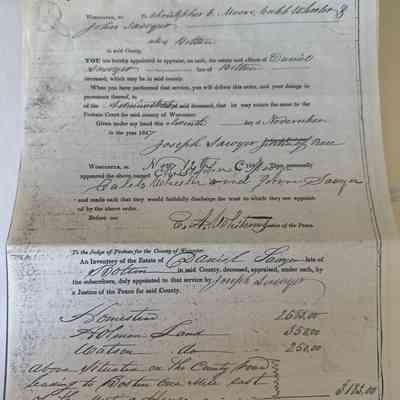 Worcester, ss. To Christopher C. Moore, Caleb Wheeler &
John Sawyer
all of Bolton
in said County.
YOU are hereby appointed to appraise, on oath, the estate and effects of Daniel
Sawyer late of Bolton
deceased, which may be in said county.
When you have performed that service, you will deliver this order, and your doings in
pursuance thereof, to
of the said deceased, that he may return the same to the
Probate Court for said county of Worcester.
Given under my hand this day of November
in the year 184
Joseph Sawyer Justice of Peace
Worcester, ss. Nov 12th personally
appeared the above named Christopher C Moore
Caleb Wheeler and John Sawyer
and made oath that they would faithfully discharge the trust to which they are appoint-
ed by the above order.
Before me Justice of the Peace.
To the Judge of Probate for the County of Worcester.
An Inventory of the Estate of Daniel Sawyer late of
Bolton in said County, deceased, appraised, under oath, by
the subscribers, duly appointed to that service by Joseph Sawyer
a Justice of the Peace for said County.
Homestead
Holman Land 350,00
Watson Do 250,00
Above Situated on The County Road
leading to Boston One Mile east